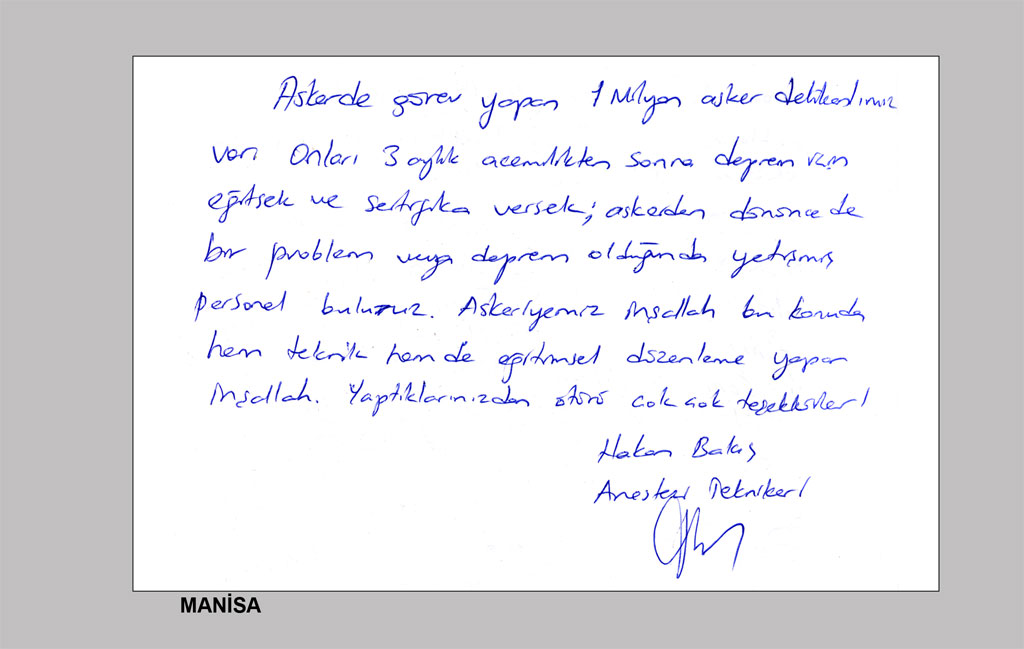 Askerde görev yapan 1 Milyon asker delikanlımız
var! Onları 3 aylık acemilikten sonra deprem için
eğitsek ve sertifika versek; askerden dönünce de
bir problem veya deprem olduğunda yetişmiş
personel buluruz. Askeriyemiz inşallah bu konuda
hem teknik hem de eğitimsel düzenleme yapar
inşallah. Yaptıklarınızdan ötürü çok çok teşekkürler!
Hakan Bakış
Anestezi Teknikeri
MANİSA